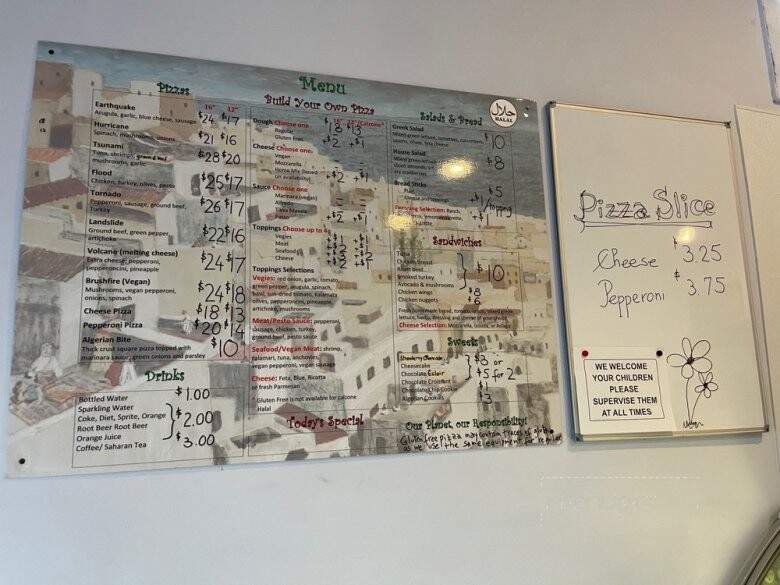 Menu
Pizzas
16" 12"
Earthquake $24 $17
Arugula, garlic, blue cheese, sausage
Hurricane $21 $16
Spinach, mushrooms, onions
Tsunami $28 $20
Tuna, shrimp, ground beef,
mushrooms, garlic
Flood $25 $17
Chicken, turkey, olives, pesto
Tornado $26 $17
Pepperoni, sausage, ground beef,
Turkey
Landslide $22 $16
Ground beef, green pepper,
artichoke
Volcano (melting cheese) $24 $17
Extra cheese, pepperoni,
pepperoncini, pineapple
Brushfire (Vegan) $24 $18
Mushrooms, vegan pepperoni,
onions, spinach
Cheese Pizza $18 $13
Pepperoni Pizza $20 $14
Algerian Bite $10
Thick crust square pizza topped with
marinara sauce, green onions and parsley
Drinks
Bottled Water $1.00
Sparkling Water
Coke, Diet, Sprite, Orange $2.00
Root Beer Root Beer
Orange Juice
Coffee/ Saharan Tea $3.00
Build Your Own Pizza
16" 12"/Calzone*
Dough Choose one $18 $13
Regular
Gluten Free $2 +$1
Cheese Choose one.
Vegan
Mozzarella
Home Mix (Based
on availability) +$2 +$1
Sauce Choose one
Marinara (vegan)
Alfredo
Pesto +$2 +$1
Toppings Choose up to 4
Vegies
Meat
Seafood
Cheese
Toppings Selections
Vegies: red onion, garlic, tomato,
green pepper, arugula, spinach,
basil, sun-dried tomato, kalamata
olives, pepperoncini, pineapple,
artichoke, mushrooms
Meat/Pesto Sauce: pepperoni,
sausage, chicken, turkey,
ground beef, pesto sauce
Seafood/Vegan Meat: shrimp,
calamari, tuna, anchovies,
vegan pepperoni, vegan sausage
Cheese: Feta, Blue, Ricotta
or fresh Parmesan
* Gluten Free is not available for calzone
Halal
Today's Special
Salads & Bread
حلال
HALAL
Greek Salad $10
Mixed green lettuce, tomatoes, cucumbers,
onions, olives, feta cheese
House Salad $8
Mixed green lettuce
Bread Sticks $5
+$1/topping
+$1
Sandwiches
Tuna
Chicken breast
Roast beef $10
Smoked turkey
Avocado & mushrooms
Chicken wings $8
Chicken nuggets $6
Cheese Selection: Mozzarella,
Sweets
Strawberry Cheesecake
Cheesecake $3 or
Chocolate Eclair $5 for 2
Chocolate Croissant
Chocolate Chip Cookie $1
Algerian Cookies $3
Our Planet, our Responsibility!
Gluten free pizza may contain traces of gluten
as we use the same equipment for regular
Pizza Slice
Cheese $3.25
Pepperoni $3.75
WE WELCOME
YOUR CHILDREN
PLEASE
SUPERVISE THEM
AT ALL TIMES